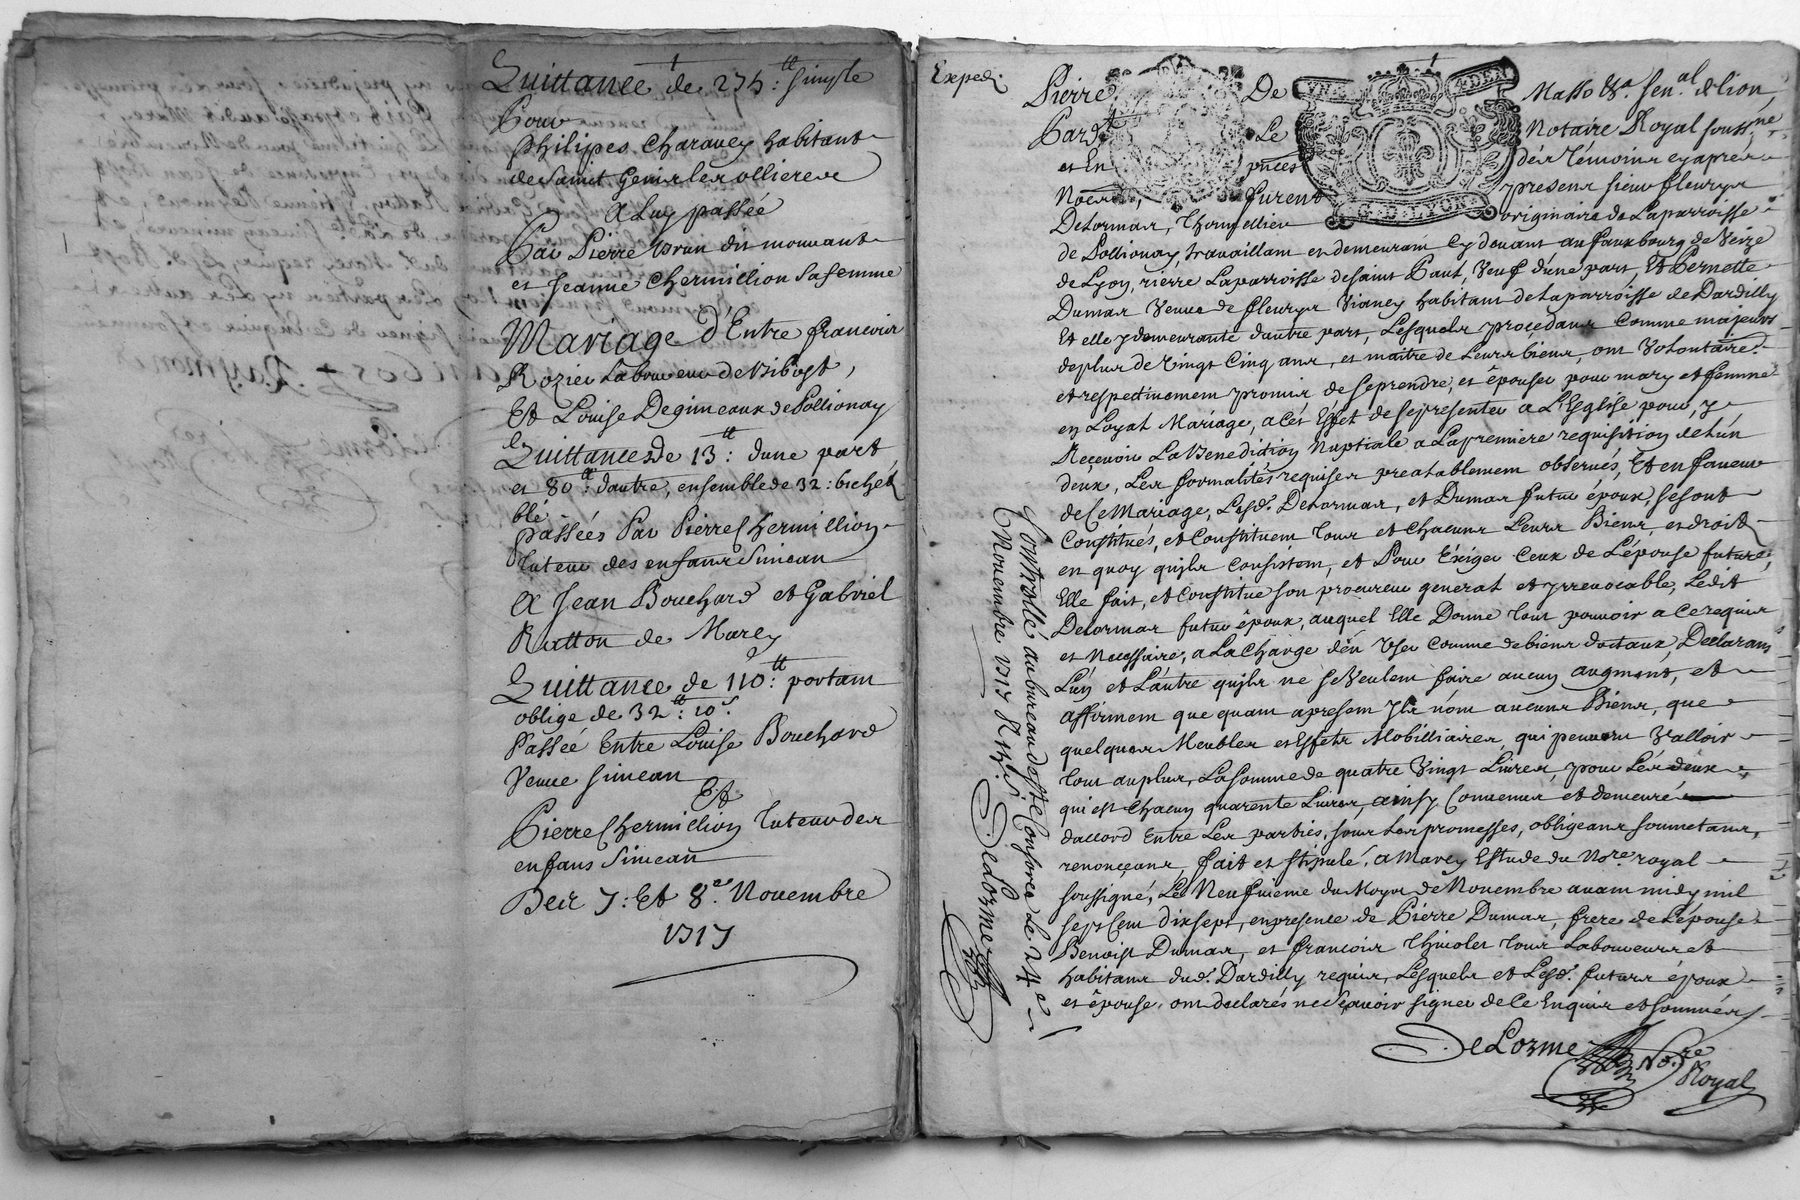 Quittance de 275:tt simple
Pour
Philipes Charavey habitant
de Saint Genis les ollieres
A Luy passée
Par Pierre Brun dit mouvant
et Jeanne Chermillion Sa femme
Mariage d'Entre francois
Rozier Laboureur de Bibost,
Et Louise Degimeaux de Pollionay
Quittances de 13:tt dune part
et 80:tt dautre, ensemble de 32: bichetz
blé
passées Par Pierre Chermillion
tuteur des enfans Simean
A Jean Bouchard et Gabriel
Ratton de Marcy
Quittance de 110:tt portant
oblige de 32tt: 10s.
Passée Entre Louise Bouchard
Veuve Simean
Et
Pierre Chermillion tuteur des
enfans Simean
Des 7: Et 8e. Novembre
1717
Expedi.
Pierre De Masso &r. Sen.al de lion,
Pardt Le Notaire Royal soussne.
et En pnces des témoins cyaprés
Noēs, furent presens sieur fleurys
Delormas, originaire de Laparroisse
de Pollionay travaillant et demeurant cy devant au fauxbourg de Veize
de Lyon, rierre Laparroisse de saint Paul, Veuf d'une part, Et Pernette
Dumas Veuve de fleurys Vianey habitant de Laparroisse de Dardilly
Et elle y demeurante dautre part, Lesquels procedans comme majeurs
de plus de Vingt Cinq ans, et maitre de Leurs biens, ont Volontaire.
et respectivement promis de se prendre, et épouser pour mary et femme
en Loyal Mariage, a cet Effet de se presenter a L'Esglise pour, y
Recevoir La Benediction Nuptiale a La premiere requisition de L'un
deux, Les formalités requises prealablement observés, Et en faveur
de Ce Mariage, Lesd. Delormas, et Dumas futur époux, se sont
Constitués, et Constituent tous et chacuns Leurs Biens, et droits
en quoy quils consistent, et Pour Exiger Ceux de L'épouse future,
Elle fait, et Constitue son procureur general et yrrevocable, Ledit
Delormas futur époux, auquel Elle Donne tout pouvoir a ce requis
et Necessaire, a La Charge d'en User comme de biens dotaux, Declarans
L'un et L'autre quils ne se Veulent faire aucun augment, et
affirment que quant apresent yls n'ont aucuns Biens, que
quelques Meubles et Effets Mobilliaires, qui peuvent Valloir
tout au plus, La somme de quatre Vingt Livres, pour Les deux,
qui est Chacun quarente Livres, ainsy Convenus et demeuré
daccord Entre Les parties, sous Les promesses, obligeans soumetans,
renonçeans, fait et stipulé, a Marcy Estude du No.re royal
soussigné, Le Neufvieme du Moys de Novembre avant midy mil
sept Cent dixsept, en presence de Pierre Dumas, frere de L'épouse
Benoist Dumas, et francois Thivolet tous Laboureurs et
habitans dud. Dardilly requis, Lesquels et Lesd. futurs époux
et épouse, ont declarés ne Sçavoir signer de Ce Enquis et sommés
DeLorme No.re
Royal
Controllé au bureau de Ste Consorce Le 24e
Novembre 1717
DeLorme